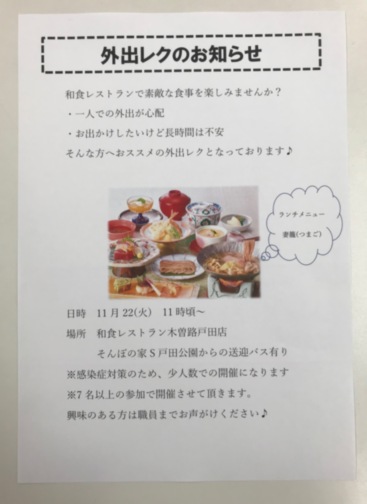 外出レクのお知らせ
和食レストランで素敵な食事を楽しみませんか？
・一人での外出が心配
・お出かけしたいけど長時間は不安
そんな方へおススメの外出レクとなっております♪
ランチメニュー
妻籠(つまご)
日時　11月22(火)　11時頃～
場所　和食レストラン木曽路戸田店
そんぽの家S戸田公園からの送迎バス有り
※感染症対策のため、少人数での開催になります
※7名以上の参加で開催させて頂きます。
興味のある方は職員までお声がけください♪